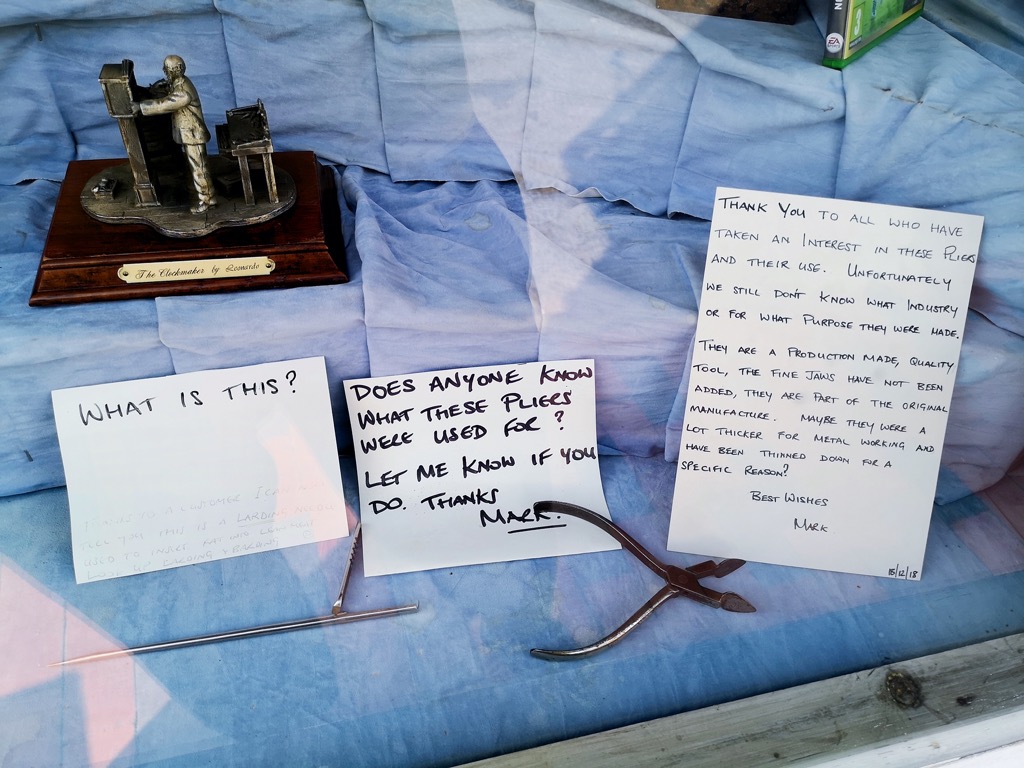 The Clockmaker by Leonardo
EA
WHAT IS THIS?
THIS IS A LARDING
LARDING
DOES ANYONE KNOW
WHAT THESE PLIERS
WERE USED FOR?
LET ME KNOW IF YOU
DO. THANKS
MARK.
THANK YOU TO ALL WHO HAVE
TAKEN AN INTEREST IN THESE PLIERS
AND THEIR USE. UNFORTUNATELY
WE STILL DON'T KNOW WHAT INDUSTRY
OR FOR WHAT PURPOSE THEY WERE MADE.
THEY ARE A PRODUCTION MADE, QUALITY
TOOL, THE FINE JAWS HAVE NOT BEEN
ADDED, THEY ARE PART OF THE ORIGINAL
MANUFACTURE. MAYBE THEY WERE A
LOT THICKER FOR METAL WORKING AND
HAVE BEEN THINNED DOWN FOR A
SPECIFIC REASON?
BEST WISHES
MARK
15/12/18